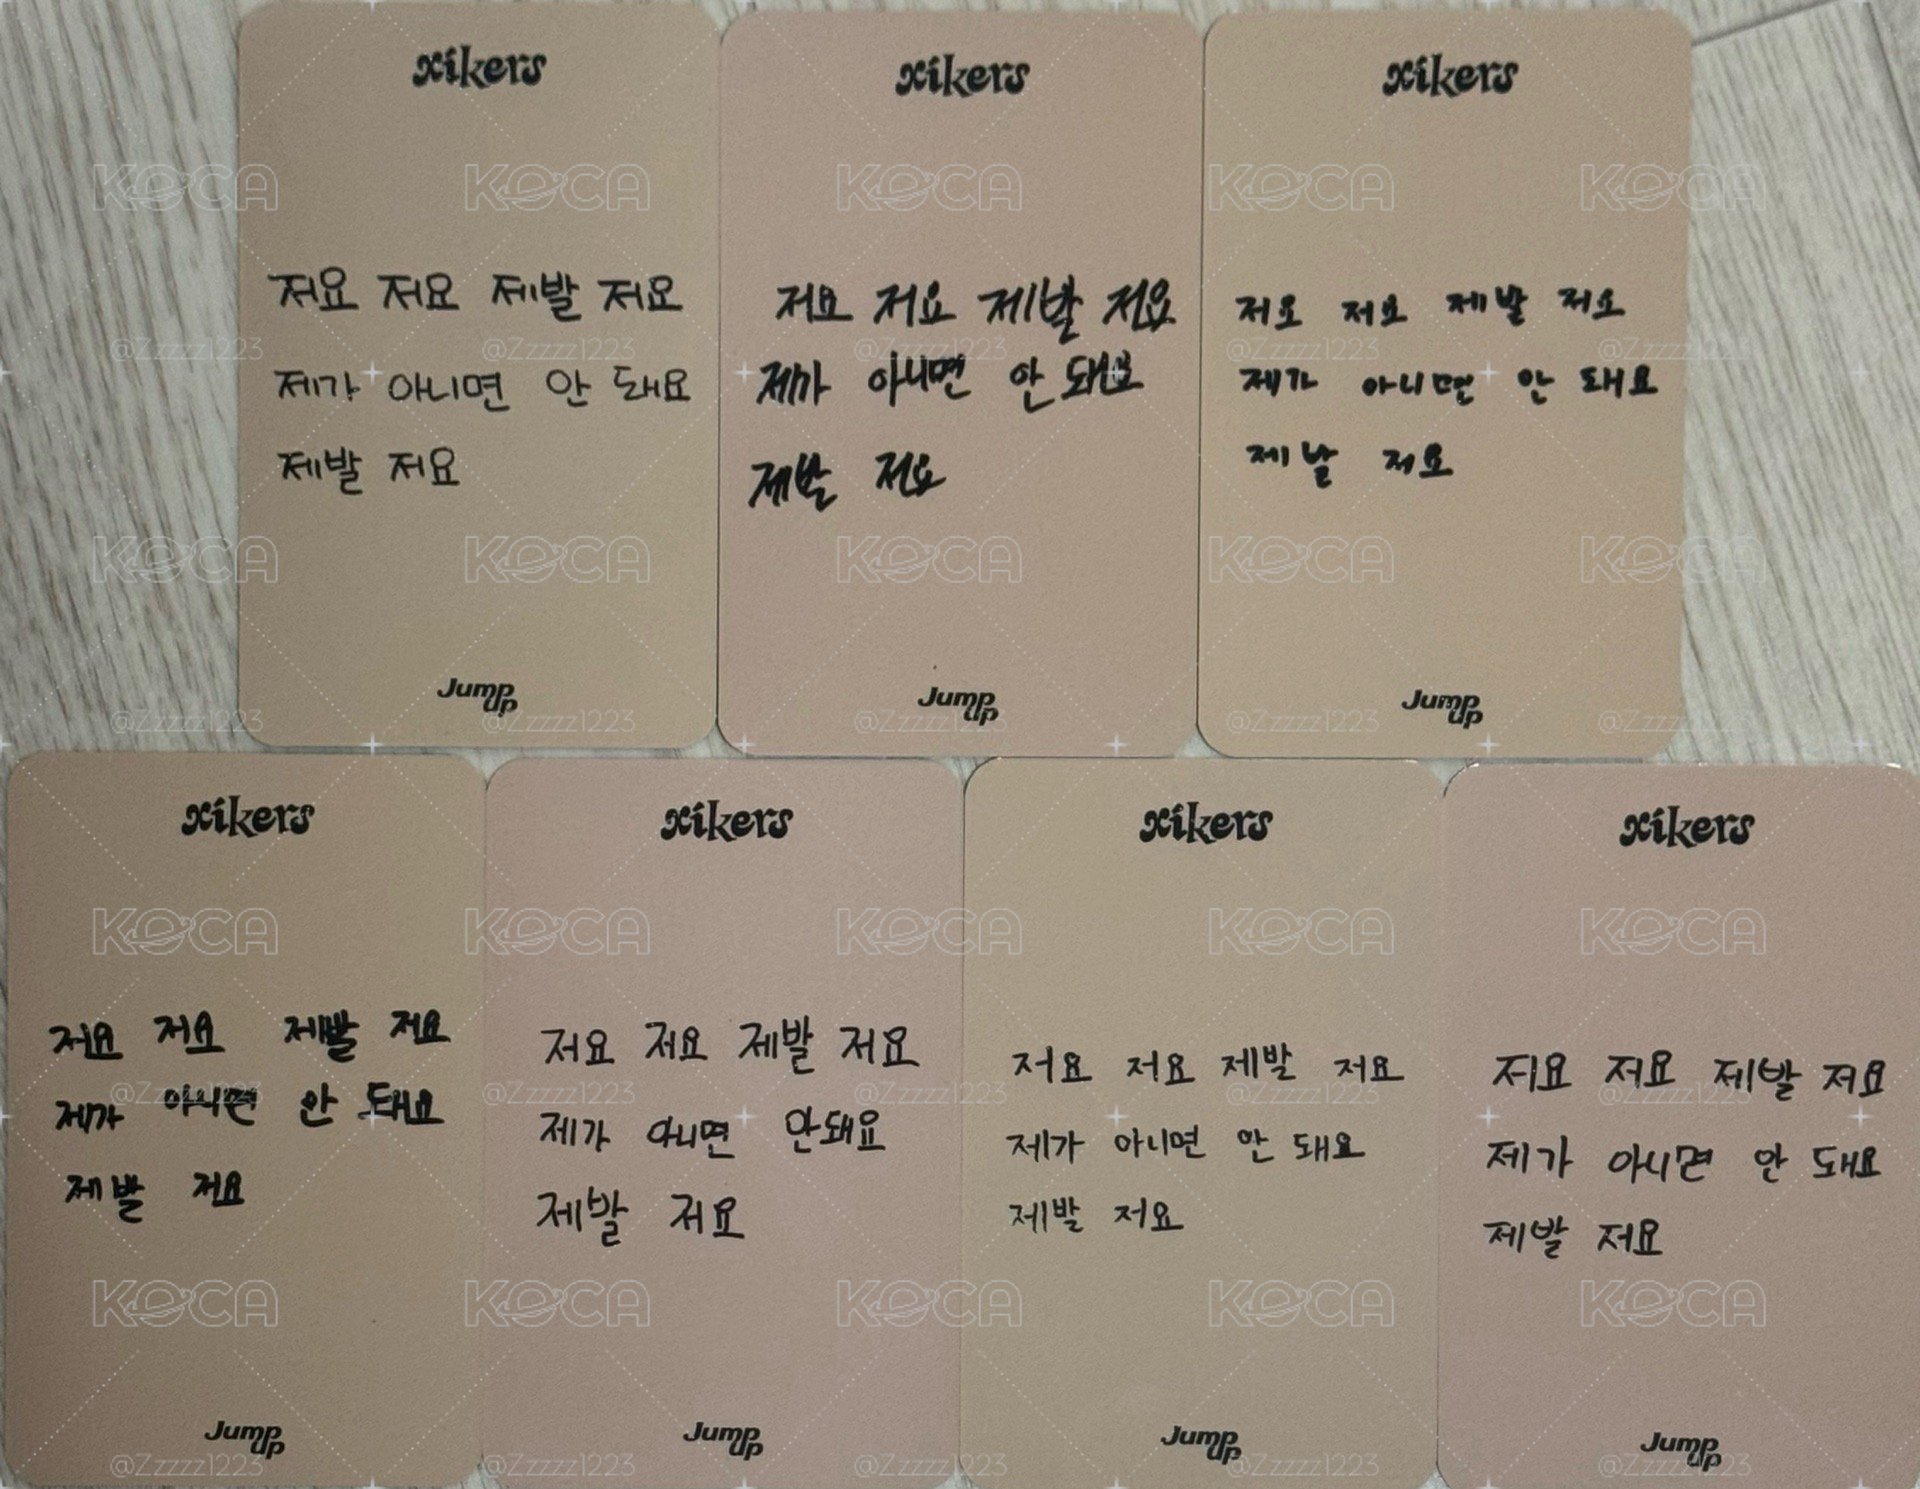 xikers
저요 저요 제발 저요
제가 아니면 안 돼요
제발 저요
Jump up
xikers
저요 저요 제발 저요
제가 아니면 안 돼요
제발 저요
Jump up
xikers
저요 저요 제발 저요
제가 아니면 안 돼요
제발 저요
Jump up
xikers
저요 저요 제발 저요
제가 아니면 안 돼요
제발 저요
Jump up
xikers
저요 저요 제발 저요
제가 아니면 안돼요
제발 저요
Jump up
xikers
저요 저요 제발 저요
제가 아니면 안 돼요
제발 저요
Jump up
xikers
저요 저요 제발 저요
제가 아니면 안 돼요
제발 저요
Jump up
KOCA
@Zzzzz1223